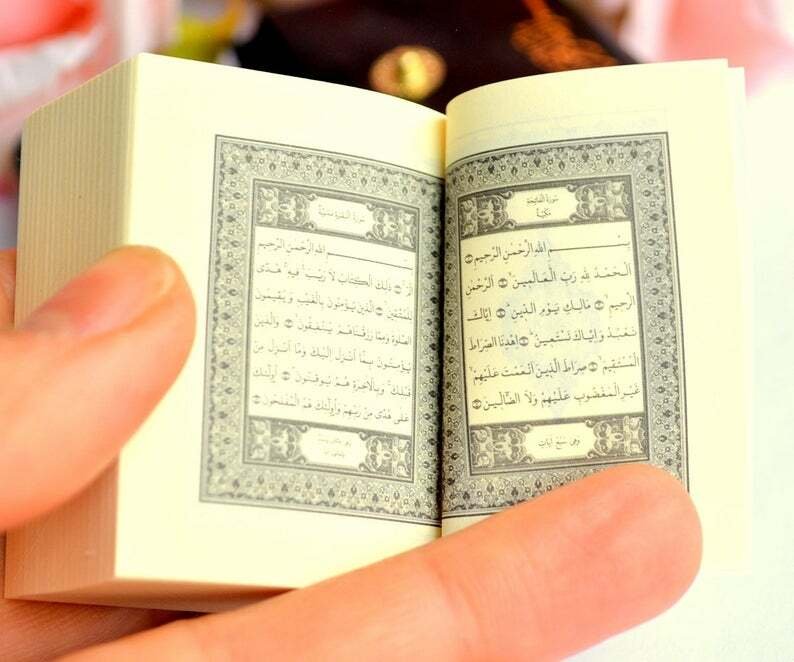 سورة الفاتحة
مكية
بسم الله الرحمن الرحيم
الحمد لله رب العالمين الرحمن
الرحيم مالك يوم الدين اياك
نعبد و اياك نستعين اهدنا الصراط
المستقيم صراط الذين انعمت عليهم
غير المغضوب عليهم ولا الضالين
وهي سبع ايات
سورة البقرة مدنية
بسم الله الرحمن الرحيم
الم ذلك الكتاب لا ريب فيه هدى
للمتقين الذين يؤمنون بالغيب و يقيمون
الصلوة ومما رزقناهم ينفقون والذين
يؤمنون بما انزل اليك وما انزل من
قبلك وبالاخرة هم يوقنون اولئك
على هدى من ربهم واولئك هم المفلحون